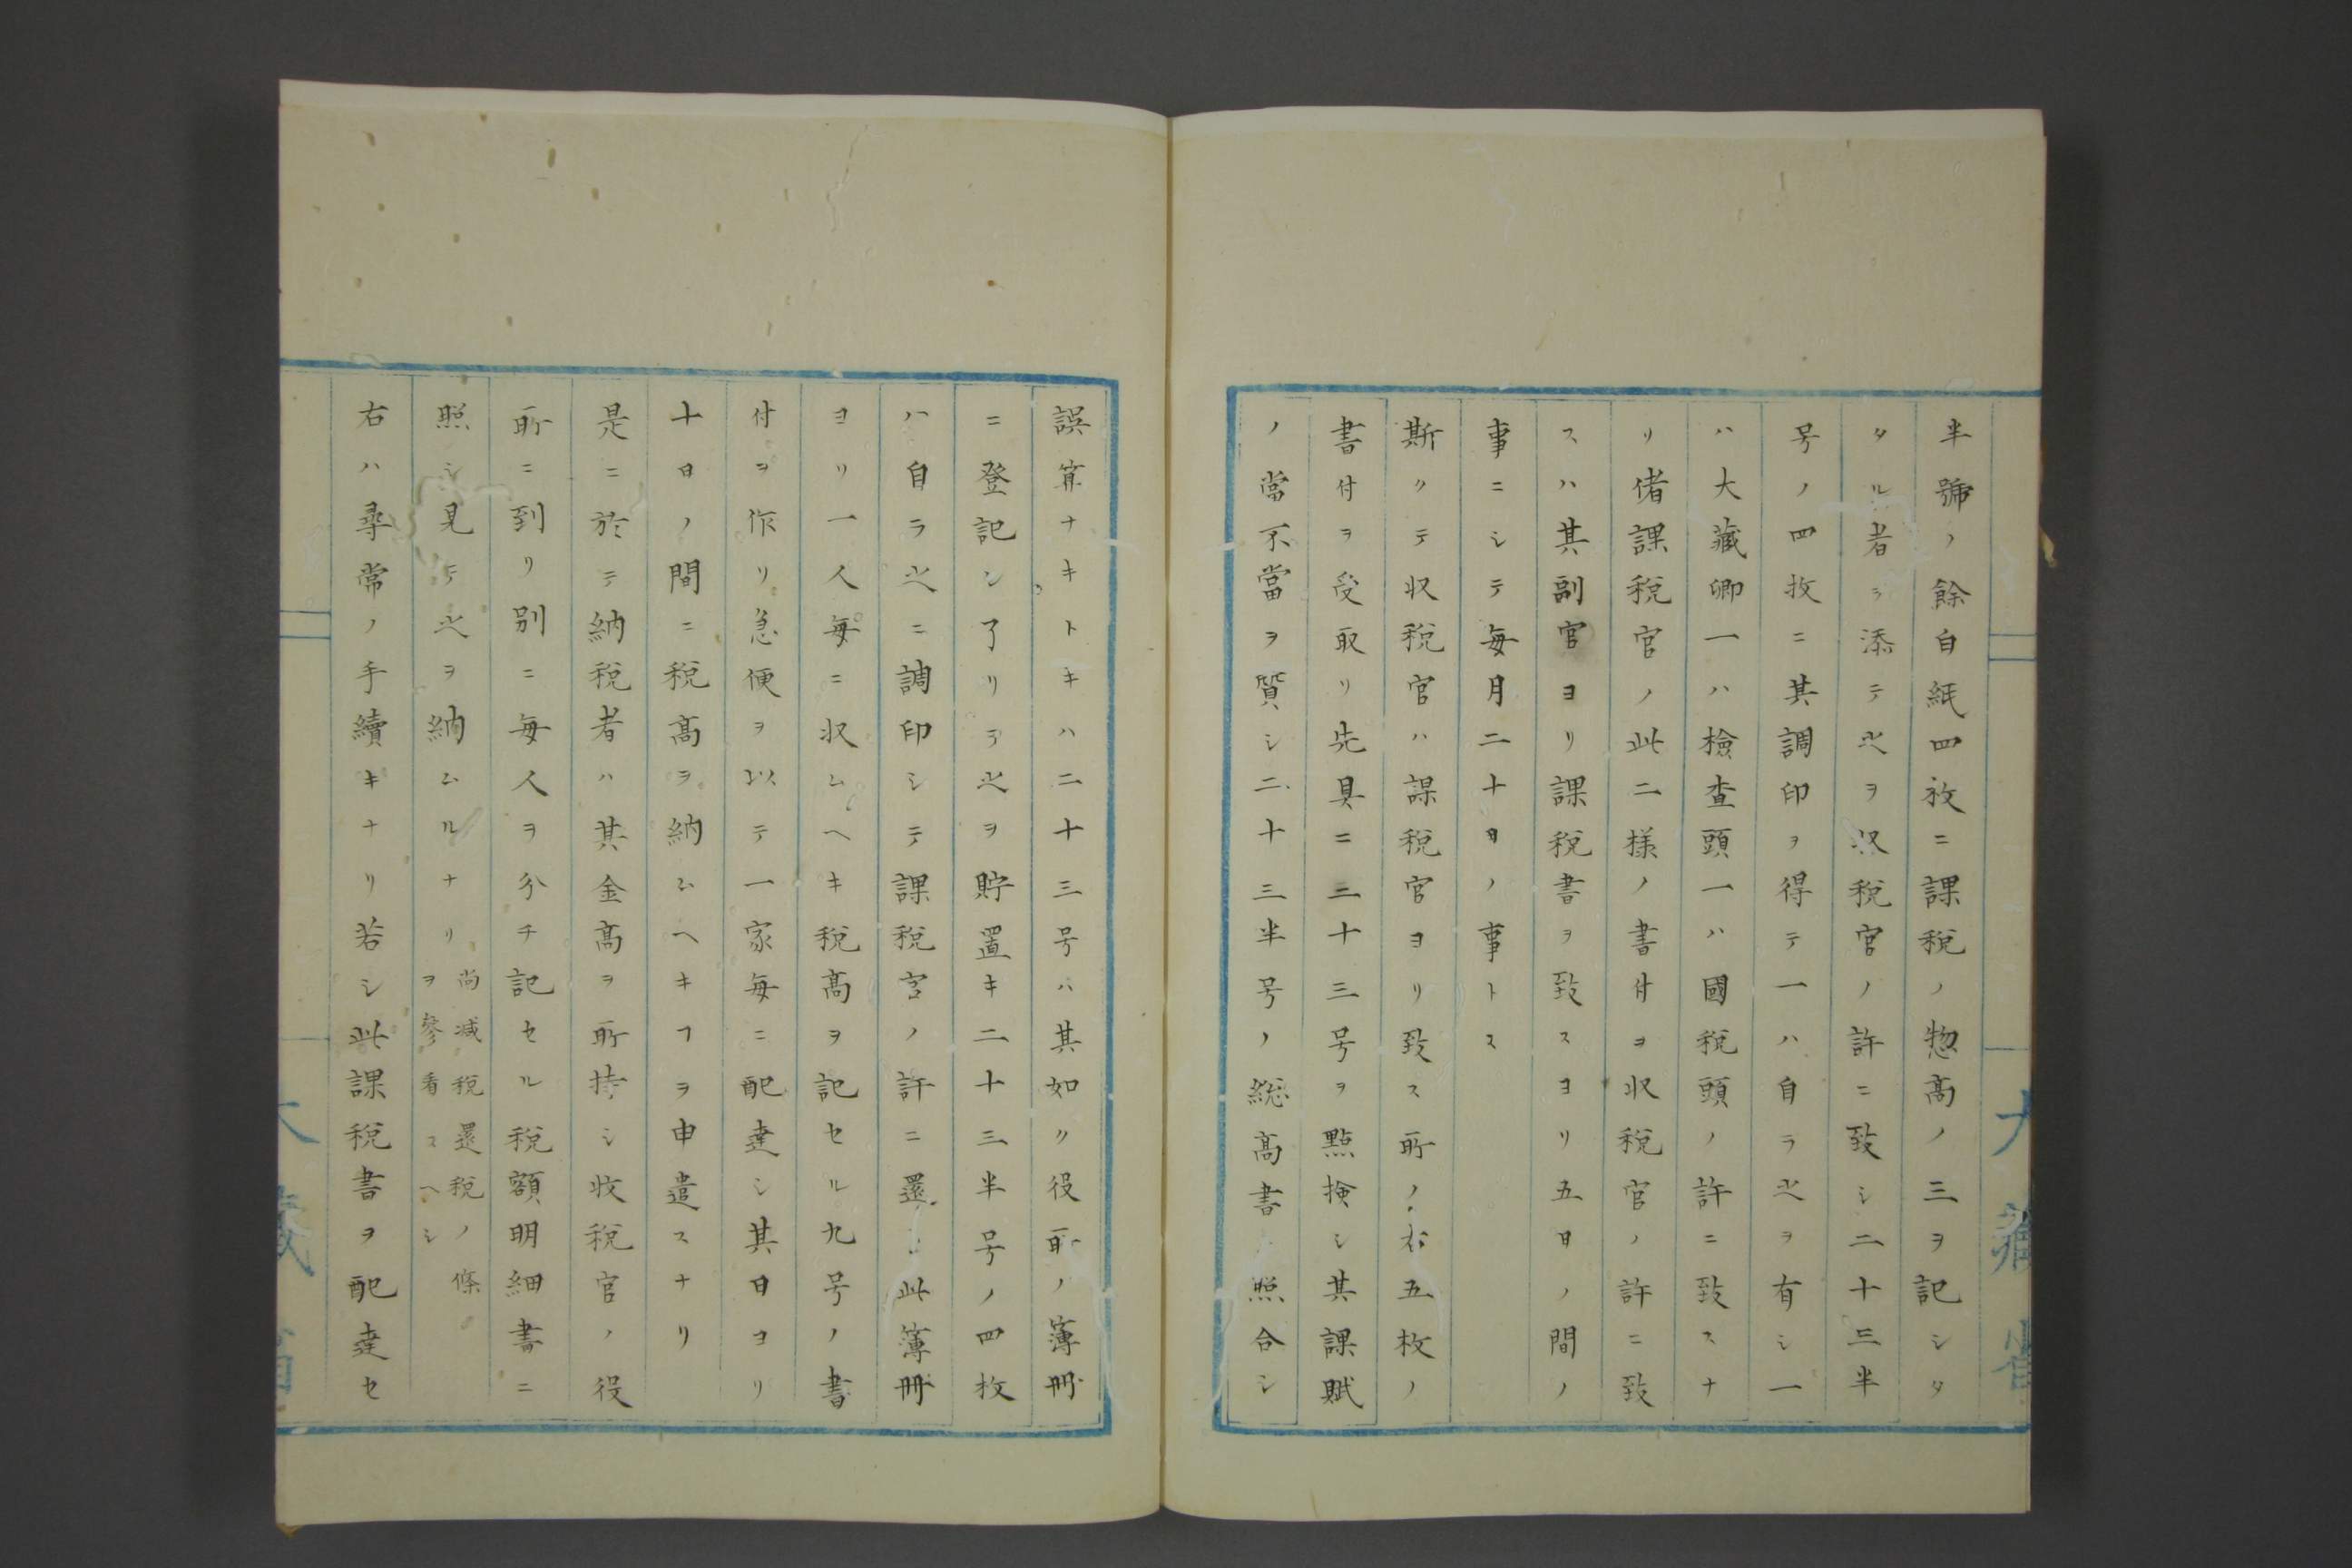 半號ノ餘白紙四枚ニ課税ノ惣高ノ三ヲ記シタ
タル者ヲ添テ之ヲ収税官ノ許ニ致シ二十三半
号ノ四枚ニ其調印ヲ得テ一ハ自ラ之ヲ有シ一
ハ大藏卿一ハ檢査頭一ハ國税頭ノ許ニ致スナ
リ偖課税官ノ此二様ノ書付ヲ収税官ノ許ニ致
スハ其副官ヨリ課税書ヲ致スヨリ五日ノ間ノ
事ニシテ毎月二十日ノ事トス
斯クテ収税官ハ課税官ヨリ致ス所ノ右五枚ノ
書付ヲ受取リ先具ニ二十三号ヲ點検シ其課賦
ノ當不當ヲ質シ二十三半号ノ総高書ニ照合シ
誤算ナキトキハ二十三号ハ其如ク役所ノ簿冊
ニ登記シ了リテ之ヲ貯置キ二十三半号ノ四枚
ハ自ラ之ニ調印シテ課税官ノ許ニ還シ此簿冊
ヨリ一人毎ニ収ムヘキ税高ヲ記セル九号ノ書
付ヲ作リ急便ヲ以テ一家毎ニ配達シ其日ヨリ
十日ノ間ニ税高ヲ納ムヘキヿヲ申遣スナリ
是ニ於テ納税者ハ其金高ヲ所持シ收税官ノ役
所ニ到リ別ニ毎人ヲ分チ記セル税額明細書ニ
照シ見テ之ヲ納ムルナリ尚減税還税ノ條ヲ參看スヘシ
右ハ尋常ノ手續キナリ若シ此課税書ヲ配達セ
大藏省
大藏省